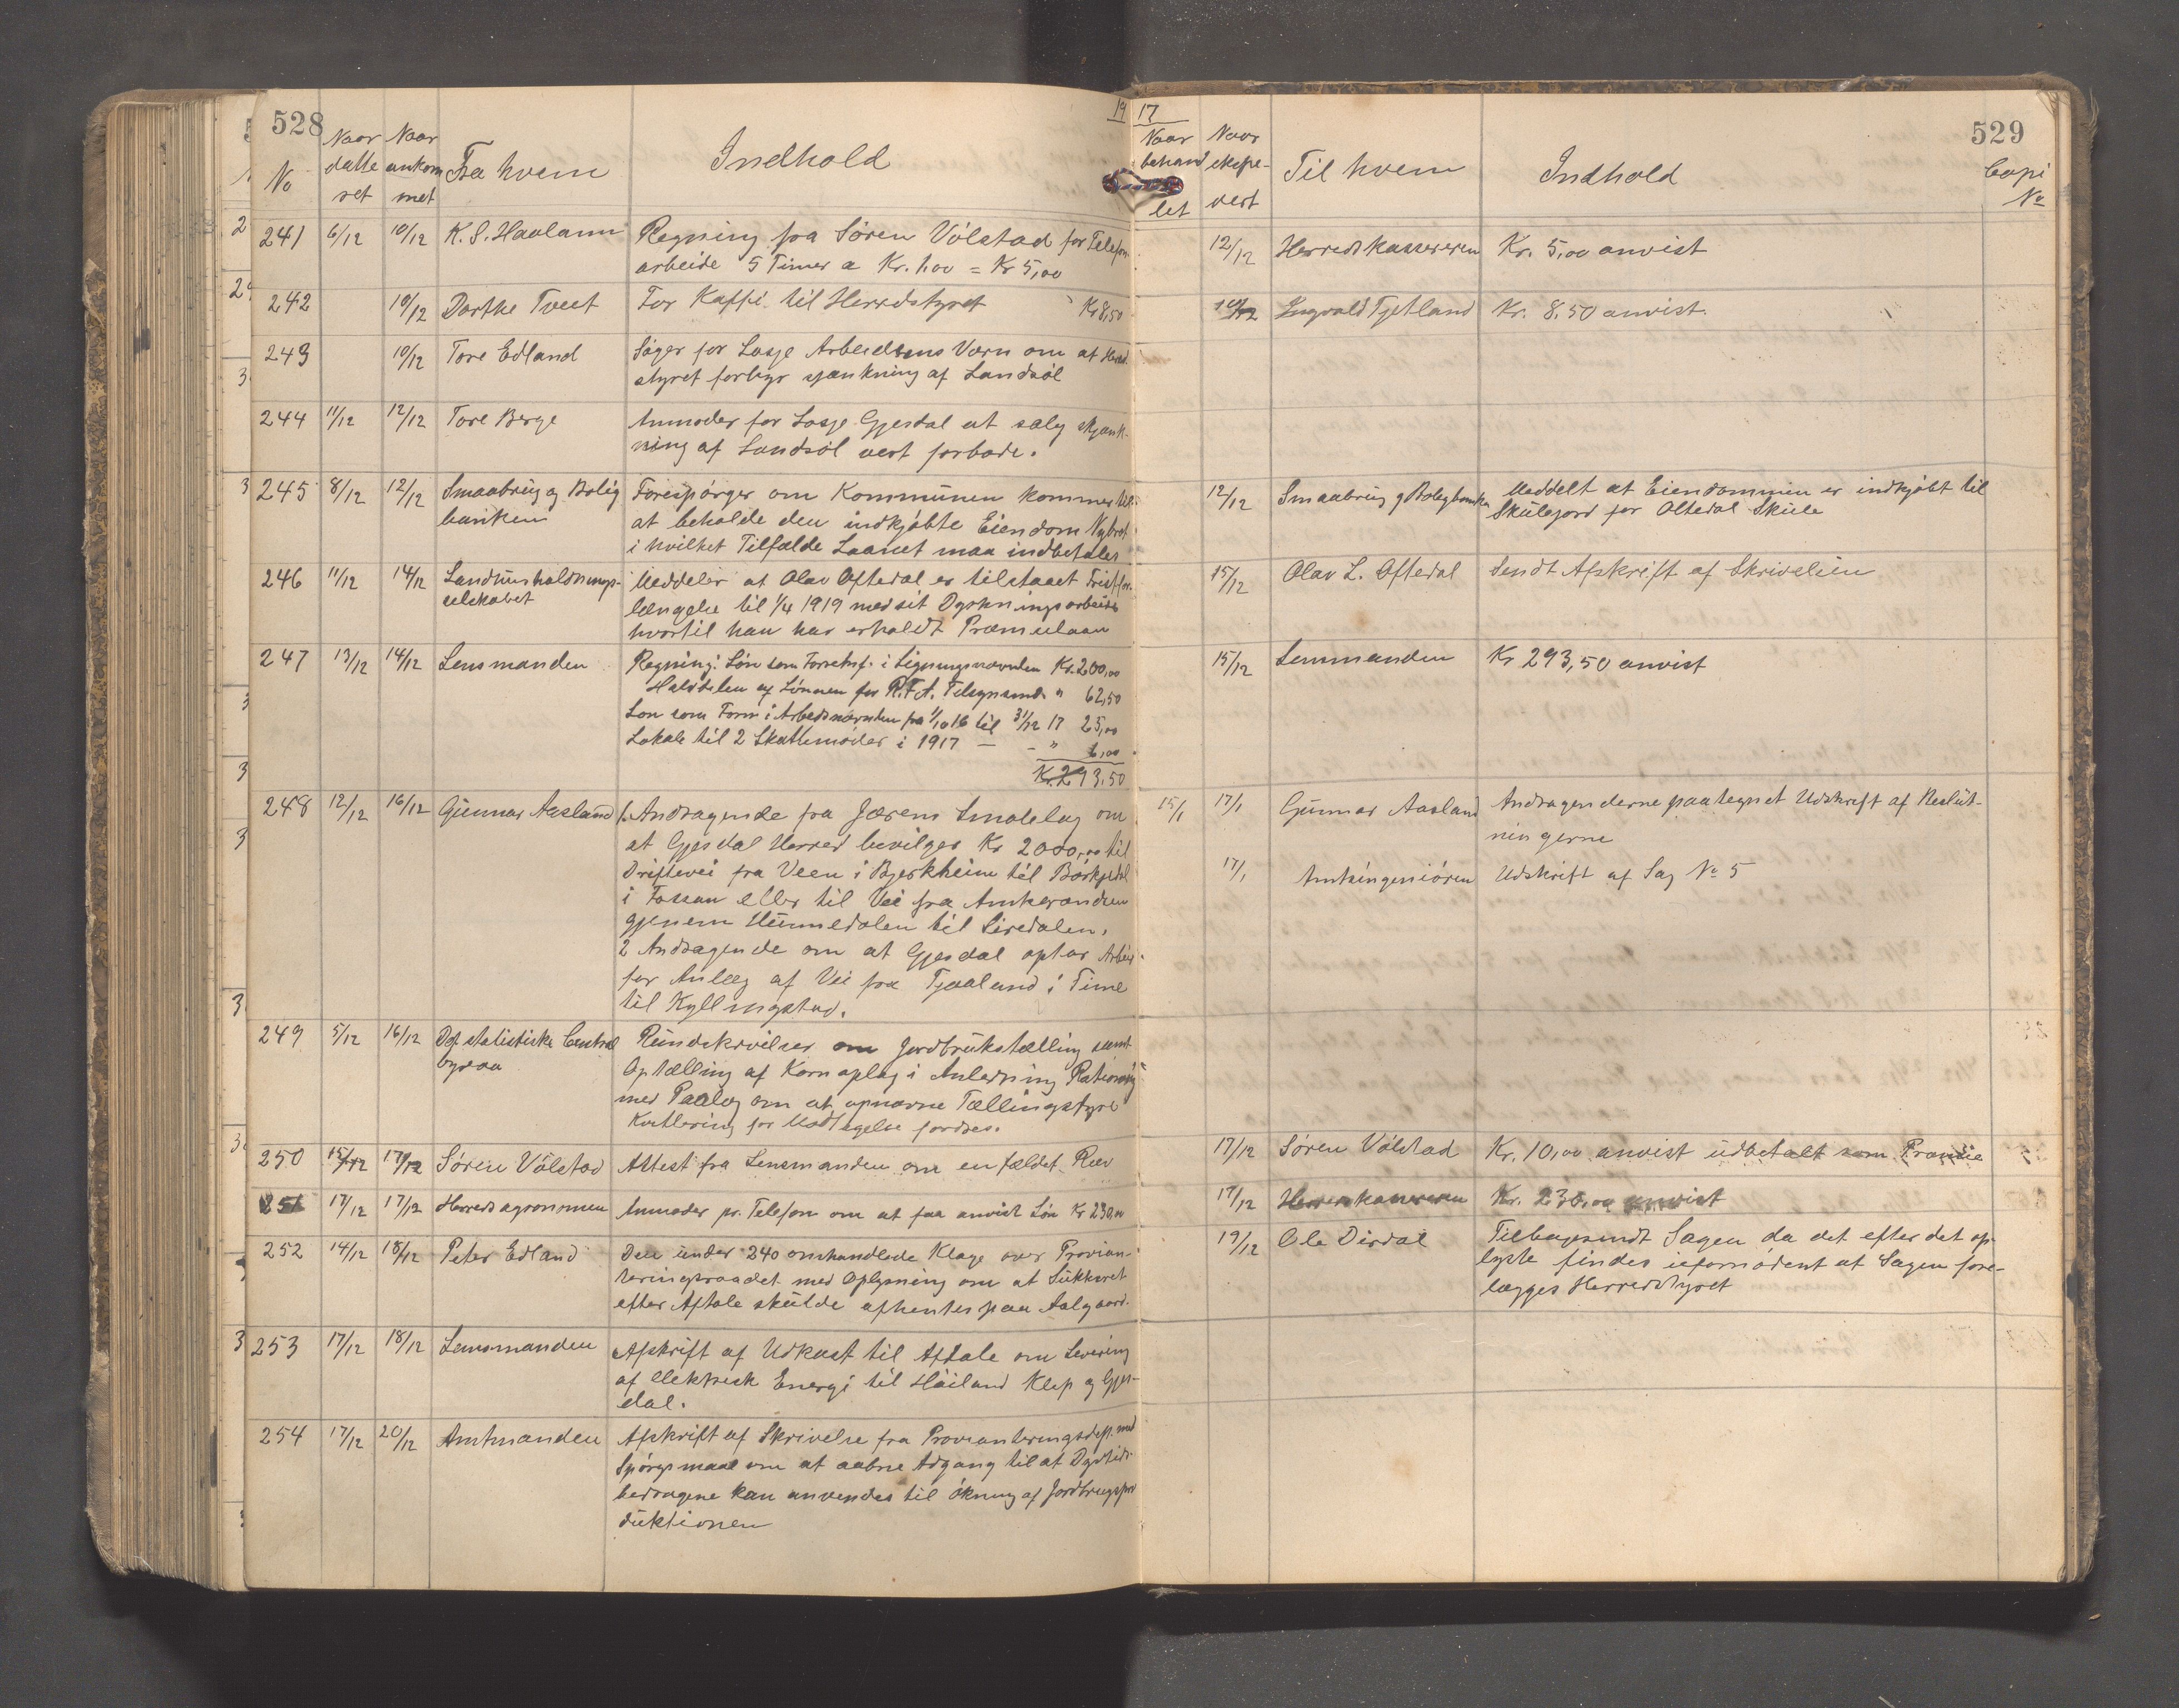 528
No
Naar
datte
ret
Naar
ankom
met
Fra hvem
Indhold
19
241 6/12 10/12 K. S. Haaland Regning fra Søren Vølstad for Telefon
arbeide 5 Timer a Kr. 1.00 = Kr 5,00
242 10/12 Dorthe Tveit For Kaffi til Herredstyret Kr 8,50
243 10/12 Tore Edland Søger for Losje Arbeidsens Værn om at Herred
styret forbyr skjænkning af Landsøl
244 11/12 12/12 Tore Berge Anmoder for Losje Gjesdal at salg skjænk-
ning af Landsøl vert forbode.
245 8/12 12/12 Smaabrug og Bolig
banken
Forespørger om Kommunen kommer til
at beholde den indkjøbte Eiendom Nybrot
i hvilket Tilfælde Laanet maa indbetales
246 11/12 14/12 Landhusholdnings-
selskabet
Meddeler at Olav Oftedal er tilstaaet Fristfor-
længelse til 1/4 1919 med sit Dyrkningsarbeide
hvortil han har erholdt Præmielaan
247 13/12 14/12 Lensmanden Regning: Løn som Forretnf. i Ligningsnævnden Kr. 200,00
Halvdelen af Lønnen for R.F.A. Tilsynsmd. " 62,50
Løn som Form i Arbeidsnævnden fra 1/10 16 til 31/12 17 25,00
Lokale til 2 Skattemøder i 1917 — - " 6,00
Kr. 293,50
248 12/12 16/12 Gunnar Aasland 1. Andragende fra Jærens Smalelag om
at Gjesdal Herred bevilger Kr 2000,00 til
Driftevei fra Veen i Bjerkheim til Børkjedal
i Fossan eller til Vei fra
gjenem Hunnedalen til Siredalen.
2 Andragende om at Gjesdal optar Arbeid
for Anlæg af Vei fra Tjaaland i Time
til Kyllingstad.
249 5/12 16/12 Det statistiske Central
byraa
Rundskrivelser om Jordbrukstælling samt
Optælling af Kornoplag i Anledning Rationering
med Paalæg om at opnævne Tællingstyre
Kvittering for Modtagelse fordres.
250 15/12 17/12 Søren Vølstad Attest fra Lensmanden om en fældet Ræv
251 17/12 17/12 Herredsagronomen Anmoder pr. Telefon om at faa anvist Løn Kr 230,00
252 14/12 18/12 Peter Edland Den under 240 omhandlede Klage over Provian-
teringsraadet med Oplysning om at Sukkeret
efter Aftale skulde afhentes paa Aalgaard.
253 17/12 18/12 Lensmanden Afskrift af Udkast til Aftale om Levering
af elektrisk Energi til Høiland Klep og Gjes-
dal.
254 17/12 20/12 Amtmanden Afskrift af Skrivelse fra Provianteringsdep. med
Spørgsmaal om at aabne Adgang til at Dyrtids
bedragene kan anvendes til økning af Jordbrugspro
duktionen
17
529
Naar
behand
let
Naar
ekspe-
dert
Til hvem
Indhold
Copi
No
12/12 Herredskassereren Kr. 5,00 anvist
14/12 Ingvald Tjetland Kr. 8.50 anvist.
12/12 Smaabrug og Boligbanken Meddelt at Eiendommen er indkjøbt til
Skulejord for Oltedal Skule
15/12 Olav L. Oftedal Sendt Afskrift af Skrivelsen
15/12 Lensmanden Kr 293,50 anvist
15/1 17/1 Gunnar Aasland Andragenderne paategnet Udskrift af Beslut-
ningerne
17/1 Amtsingeniøren Udskrift af Sag No 5
17/12 Søren Vølstad Kr. 10,00 anvist udbetalt som Præmie
17/12 Herredskassereren Kr. 230,00 anvist
19/12 Ole Dirdal Tilbagesendt Sagen da det efter det op-
lyste findes ufornødent at Sagen fore-
lægges Herredstyret